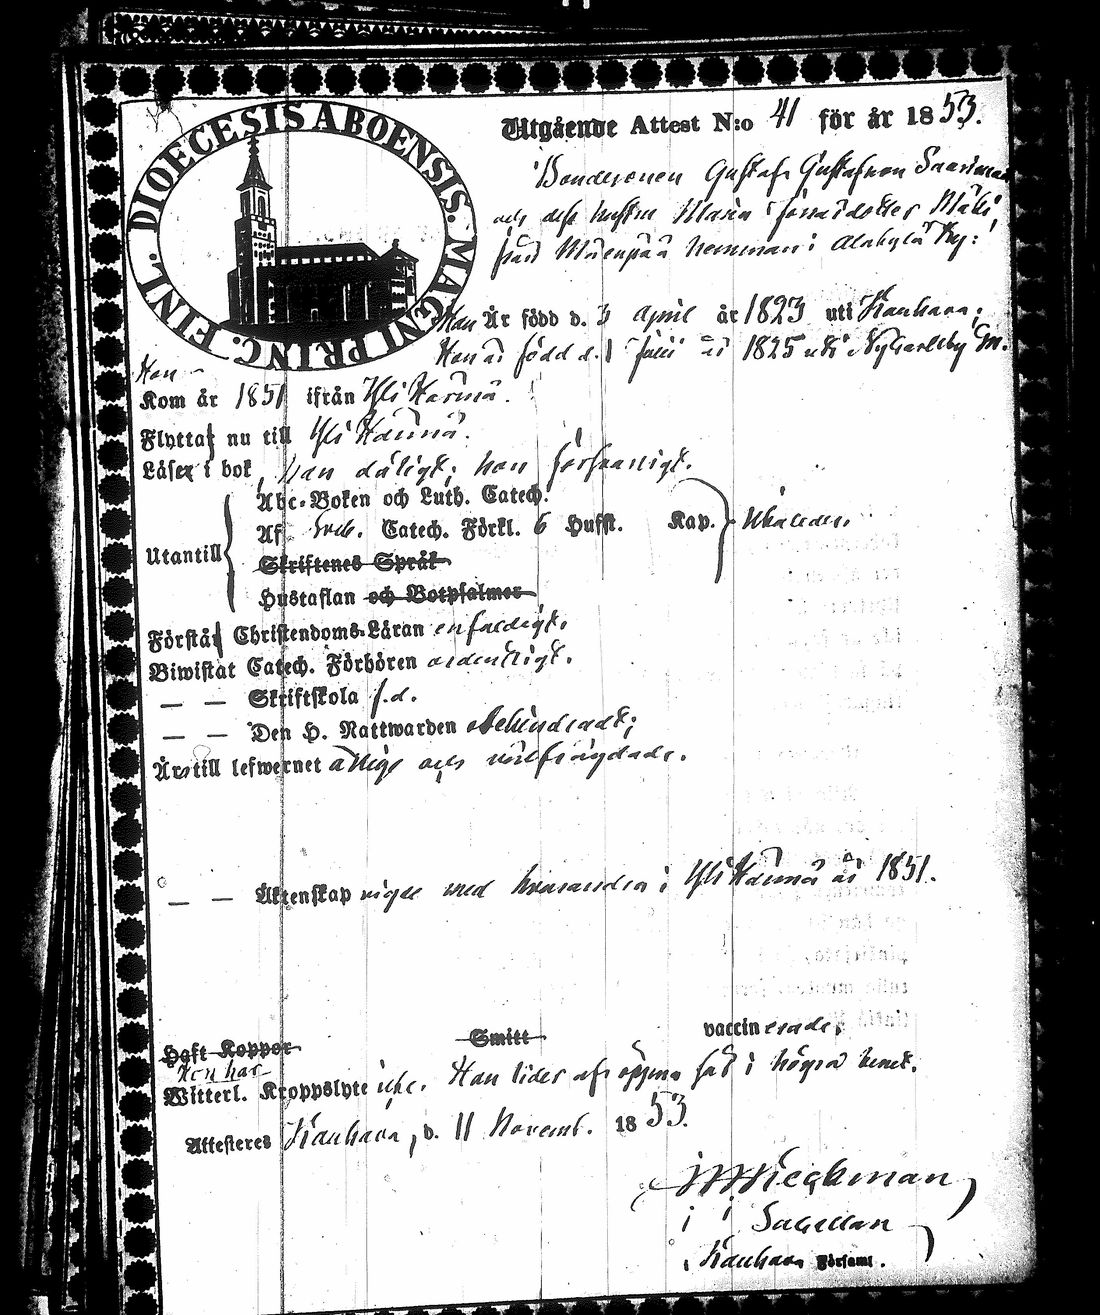 DIOECESIS ABOENSIS. MAGNI PRINC. FINL.
Utgående Attest N:o 41 för år 1853.
Bondesonen Gustaf Gustafson
och dess hustru Maria Mäki
från hemman i Alakylä by:
Han Är född d. 3 April år 1823 uti Kauhava;
Hon är född d. 1 Juli år 1825 uti Nycarleby
Hon
Kom år 1851 ifrån Yli Härmä.
Flytta nu till Yli Härmä.
Läser i bok, han dåligt; hon försvarligt.
Abc-Boken och Luth. Catech.
Utantill Af Sveb. Catech. Förkl. 6 Hufst. Kap.
Skriftenes Språk
Hustaflan och Botpsalmer
Förstå Christendoms-Läran enfaldigt.
Biwistat Catech. Förhören ordentligt.
— — Skriftskola f.d.
— — Den H. Nattwarden obehindradt;
Är till lefwernet ärlige och välfrägdade.
— — Äktenskap vigde med hvarandra i Yli Härmä år 1851.
Haft Koppor Smitt vaccinerade;
Hon har
Witterl. Kroppslyte icke. Han lider af öppna sår i högra benet.
Attesteres Kauhava, d. 11 Novemb. 1853.
Sacellan
Kauhava Församl.